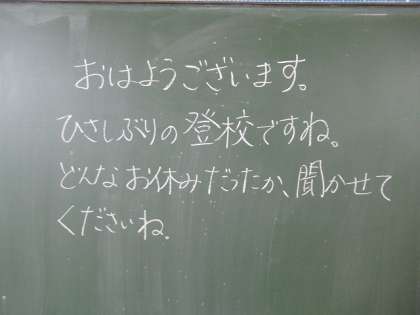 おはようございます。
ひさしぶりの登校ですね。
どんなお休みだったか、聞かせて
くださいね.